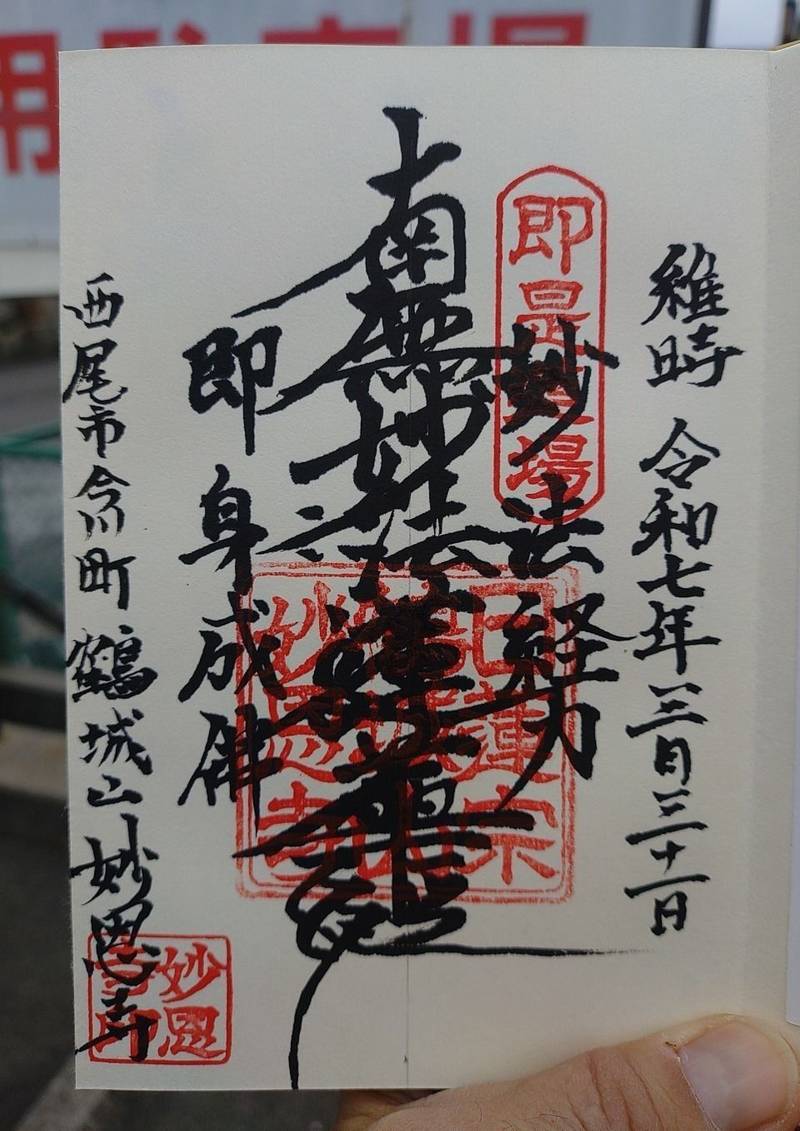 用駐車場
維時 令和七年三月三十一日
即是道場
妙法経力
南無妙法蓮華經
即身成佛
日蓮宗
鶴城山
妙恩寺
西尾市今川町 鶴城山 妙恩寺
妙恩
寺印